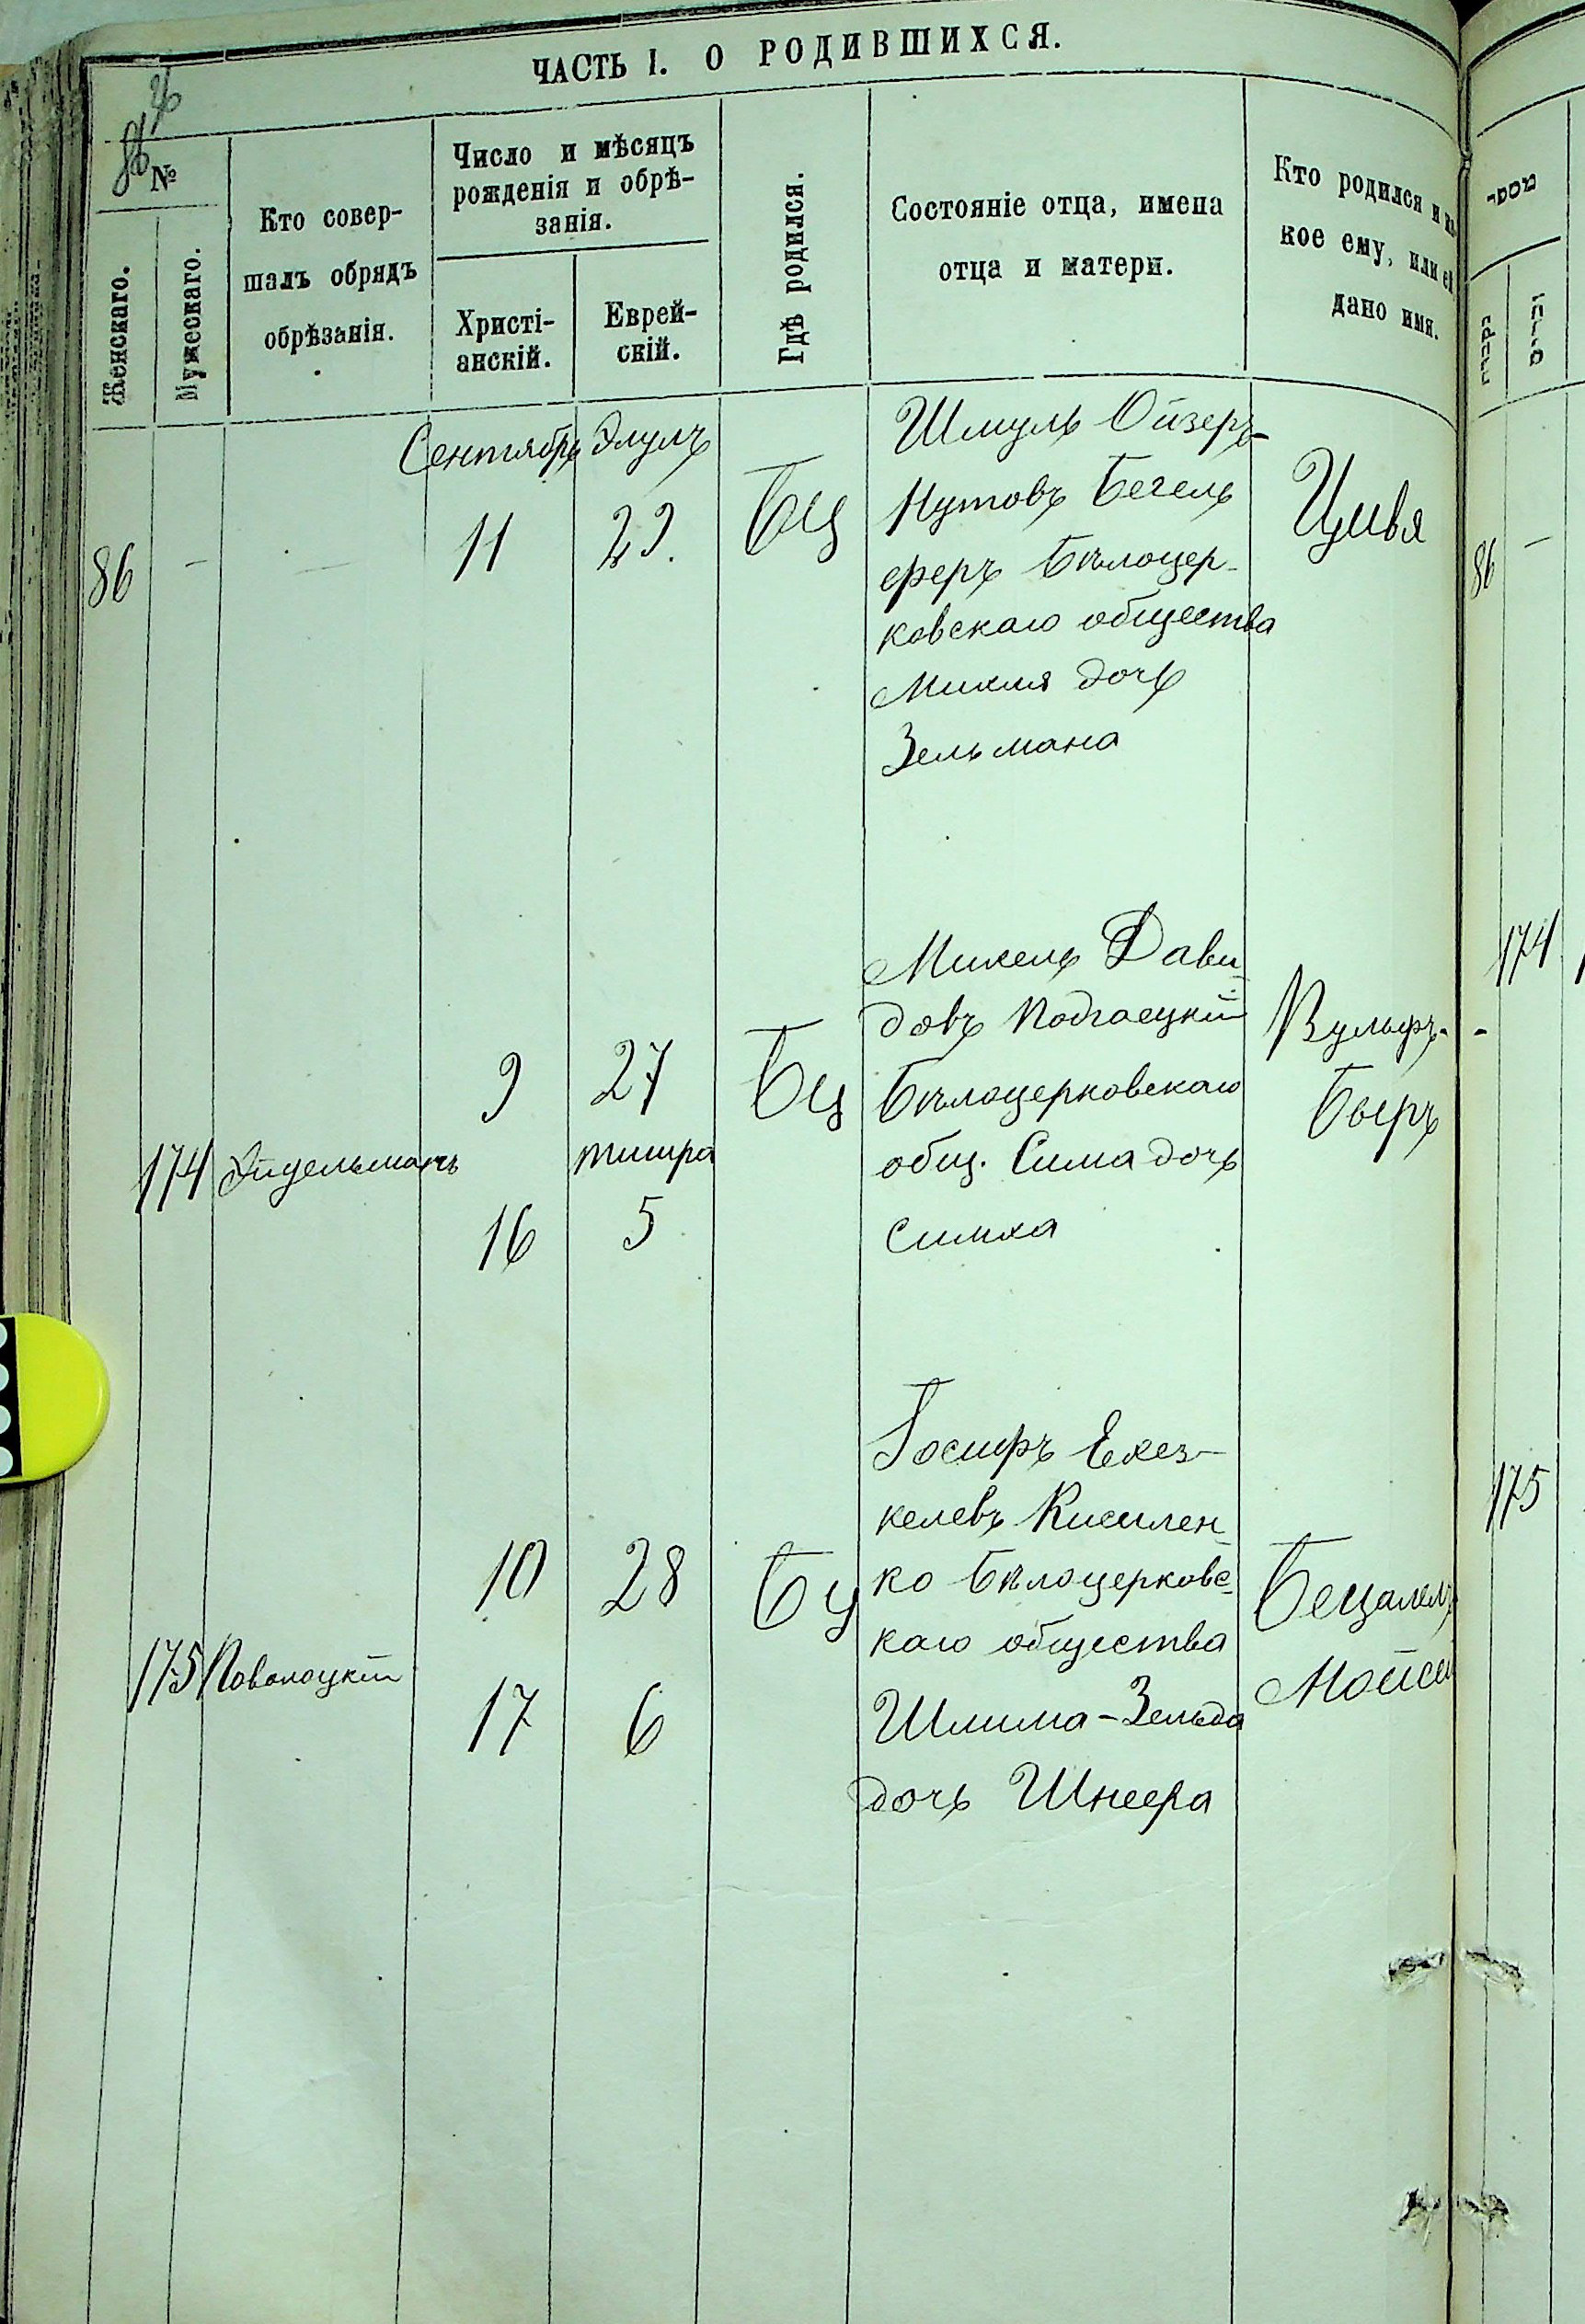 ЧАСТЬ I. О РОДИВШИХСЯ.
№
Женскаго.
Мужескаго.
Кто совер-
шалъ обрядъ
обрѣзанія.
Число и мѣсяцъ
рожденія и обрѣ-
занія.
Христі-
анскій.
Еврей-
скій.
Гдѣ родился.
Состояніе отца, имена
отца и матери.
Кто родился и
кое ему, или ей
дано имя.
Сентябрь Элулъ
86 - - 11 29. БЦ
Шмуль Ойзеръ-
Нутовъ Бегель
феръ Бѣлоцер-
ковскаго общества
дочь
Зельмана
Цивья
174 Эйдельманъ
9 27 Бц
тишра
16 5
Михель Дави-
довъ Подгаецкій
Бѣлоцерковскаго
общ. Сима дочь
Симха
Вульфъ-
Беръ
175 Поволоцкій
10 28 Бц
17 6
Іосифъ Ехез-
келевъ Кисилен
ко Бѣлоцерковс-
каго общества
Шлима-Зельда
дочь Шнеера
Бецалель
Мойсе
86 -
174
175